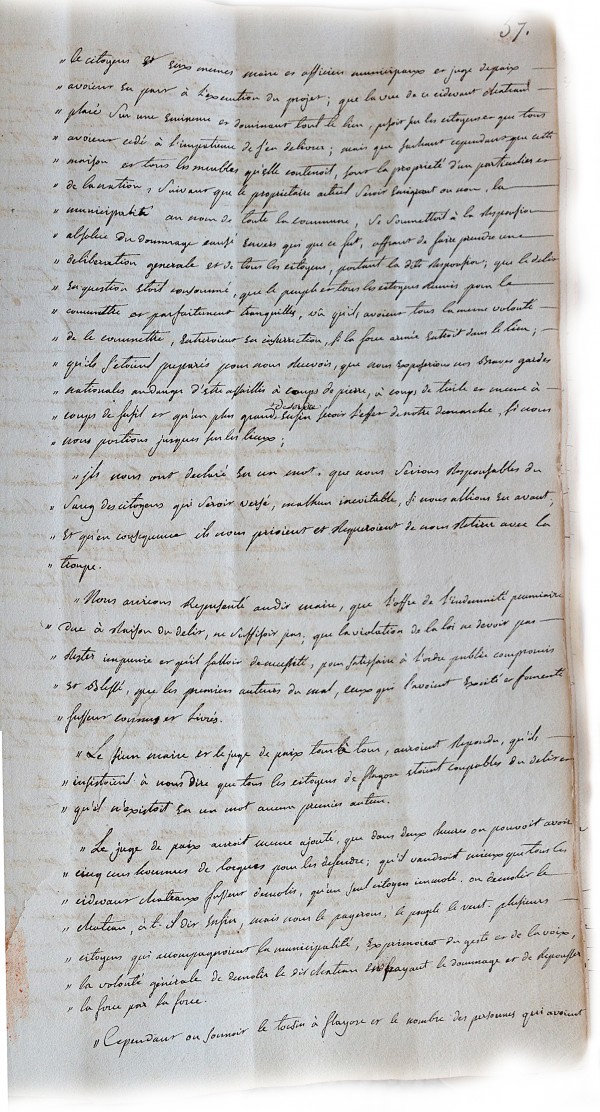 57.
" Ce citoyens et eux memes maire et officiers municipaux et juge depaix —
" avoient eu part à l'execution du projet; que la vue de ce cidevant chateau
" placé sur une eminence et dominant tout le lieu, pesoit sur les citoyens et que tous
" avoient cedé à l'impatience de s'en delivrer; mais que sachant cependant que cette
" maison et tous les meubles qu'elle contenoit, sont la propriété d'un particulier ou
" de la nation, suivant que le propriétaire actuel seroit emigrant ou non, la —
" municipalité au nom de toute la commune, se soumettoit à la Responsion
" absolue du dommage causé envers qui que ce fut, offrant de faire prendre une —
" deliberation generale et de tous les citoyens, portant la dite Responsion; que le delit
" en question étoit consommé, que le peuple et tous les citoyens Reunis pour la —
" commettre et parfaitement tranquilles, vû qu'ils avoient tous la meme volonté
" de le commettre, entreroient en insurrection, si la force armée entroit dans le lieu; —
" qu'ils s'étoient preparés pour nous Recevoir, que nous exposerions nos Braves gardes
" nationales au danger d'etre assaillies à coups de pierre, à coups de tuile et meme à —
" coups de fusil et qu'un plus grand desordre enfin seroit l'effet de notre demarche, si nous
" nous portions jusques sur les lieux;
" jls nous ont declaré en un mot, que nous serions Responsables du
" sang des citoyens qui seroit versé, malheur inevitable, si nous allions en avant;
" et qu'en consequence ils nous prioient et Requeroient de nous Retirer avec la
" troupe.
" Nous aurions Representé audit maire, que l'offre de l'indemnité pecuniaire
" due à Raison du delit, ne suffisoit pas, que la violation de la loi ne devoit pas —
" Rester impunie et qu'il falloit de necessité, pour satisfaire à l'ordre public compromis
" et Blessé, que les premiers auteurs du mal, ceux qui l'avoient Excité et fomenté
" fussent connus et livrés.
" Le sieur maire et le juge de paix tour à tour, auroient Repondu, qu'ils —
" insistoient à nous dire que tous les citoyens de flayosc etoient coupables du delit et
" qu'il n'existoit en un mot aucun premier auteur.
" Le juge de paix auroit meme ajouté, que dans deux heures on pouvoit avoir
" cinq cens hommes de lorgues pour les defendre; qu'il vaudroit mieux que tous les
" cidevant chateaux fussent demolis, qu'un seul citoyen immolé. on demolit le
" chateau, a-t-il dit enfin, mais nous le payerons, le peuple le veut. plusieurs —
" citoyens qui accompagnoient la municipalité, exprimoient du geste et de la voix,
" la volonté générale de demolir le dit chateau en payant le dommage et de Repousser
" la force par la force.
" Cependant on sonnoit le tocsin à flayosc et le nombre des personnes qui avoient